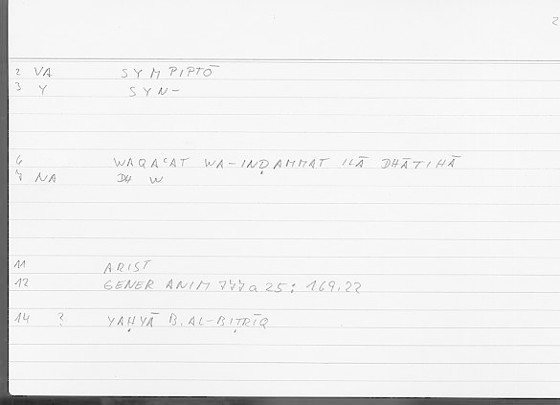 2
2 VA SYMPIPTŌ
3 Y SYN-
6 WAQAʿAT WA-INḌAMMAT ILĀ DHĀTIHĀ
8 NA DH W
11 ARIST
12 GENER ANIM 777a25: 169.22
14 ? YAḤYĀ B. AL-BIṬRĪQ